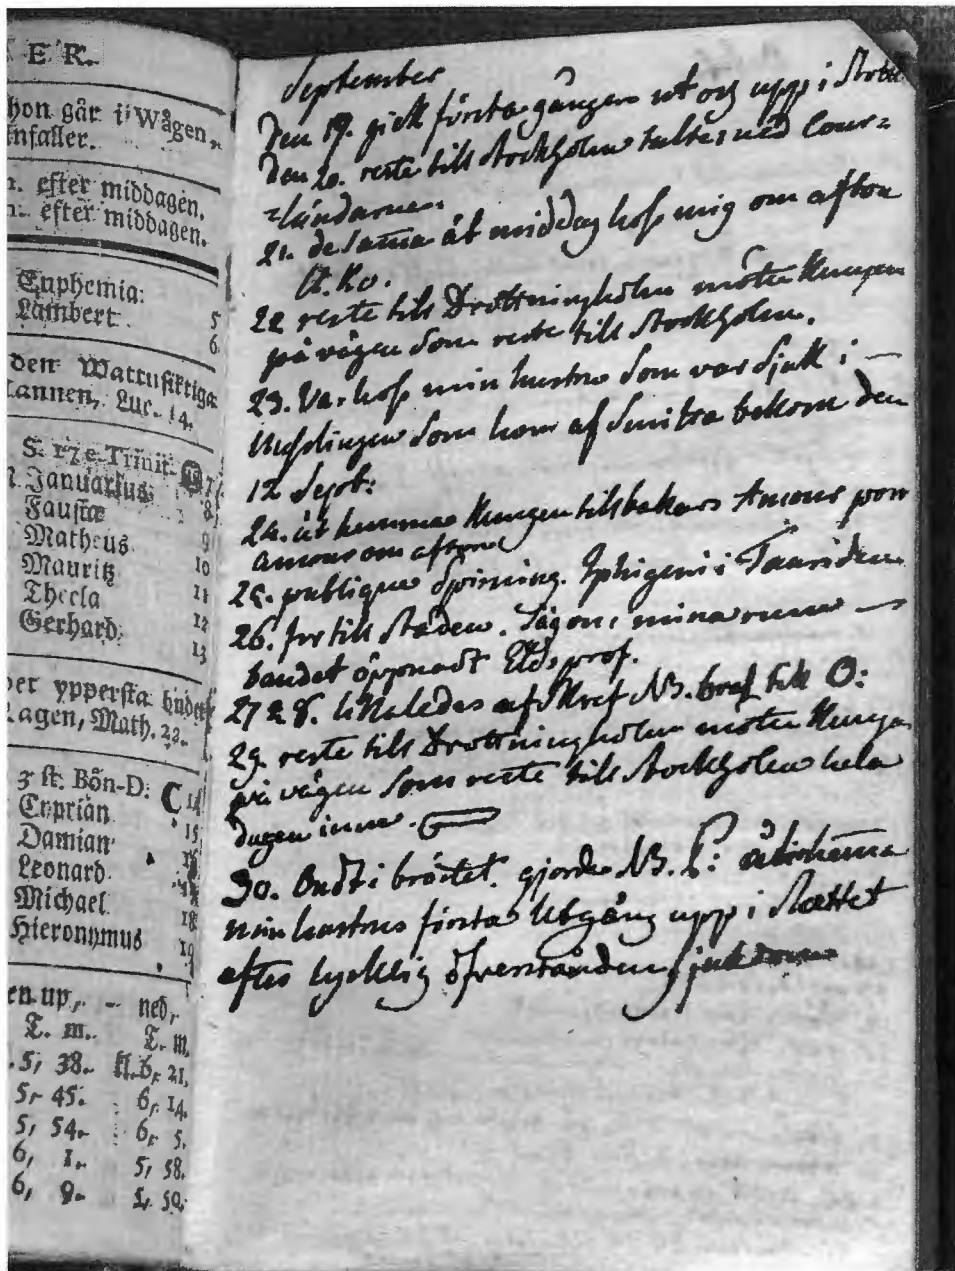 ER.
hon går i Wågen,
infaller.
n. efter middagen.
n. efter middagen.
Euphemia: 5
Lambert. 6
den Wattusiktiga
Mannen, Luc. 14.
S. 17 e. Trinit. 7
Januarius. 8
Faustæ 9
Matheus 10
Mauritz 11
Thecla 12
Gerhard. 13
ypperста budet
Lagen, Math. 22.
3 st. Bön-D. 14
Cyprian 15
Damian 16
Leonard. 17
Michael 18
Hieronymus 19
en up, - ned,
T. m. T. m.
5, 38. kl. 6, 21.
5, 45. 6, 14.
5, 54. 6, 5.
6, 1. 5, 58.
6, 9. 5, 50.
September
den 19. gick första gången ut och upp i Slottet
den 20. reste till Stockholm med Cour=
=ländarne.
21. de samma åt middag hoss mig om afton
22 reste till Drottningholm mötte Kungen
på vägen som reste till Stockholm.
23. Var hoss min hustru som var sjuk i
Messlingen som hon af bekom den
12 Sept:
24. Kungen tilbakars Amour pour
amour om afton
25. publique Spisning. Iphigenie i Tauriden
26. for till Staden. i mina rum
bandet öppnadt Eldsprof.
27 28. likaledes NB. bref till O:
29. reste till Drottningholm mötte Kungen
på vägen som reste till Stockholm hela
dagen inne.
30. Ondt i bröstet. gjorde NB.
min hustrus första utgång upp i Slottet
efter lycklig öfverstånden sjukdom